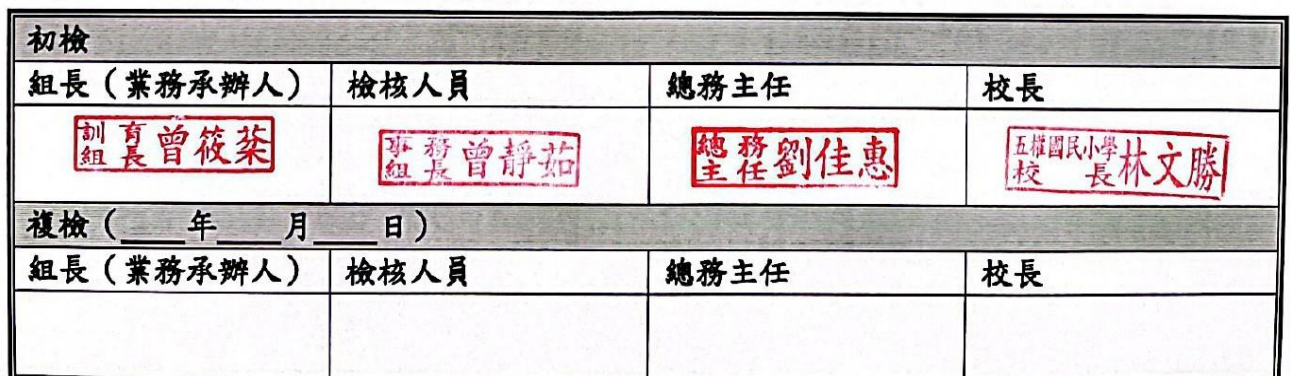 初檢
組長（業務承辦人） 檢核人員 總務主任 校長
訓育組長 曾筱棻 事務組長 曾靜茹 總務主任 劉佳惠 五權國民小學校長 林文勝
複檢（___年___月___日）
組長（業務承辦人） 檢核人員 總務主任 校長